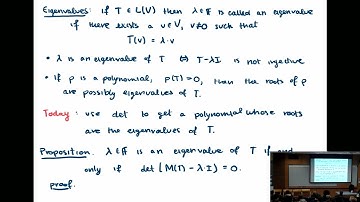 Eigenvalues: if T ∈ L(V) then λ ∈ F is called an eigenvalue
if there exists a v ∈ V, v ≠ 0 such that
T(v) = λ·v
• λ is an eigenvalue of T ⇔ T-λI is not injective
• if p is a polynomial, p(T) = 0, then the roots of p
are possibly eigenvalues of T.
Today: use det to get a polynomial whose roots
are the eigenvalues of T.
Proposition. λ ∈ F is an eigenvalue of T if and
only if det (M(T) - λ·I) = 0.
proof.